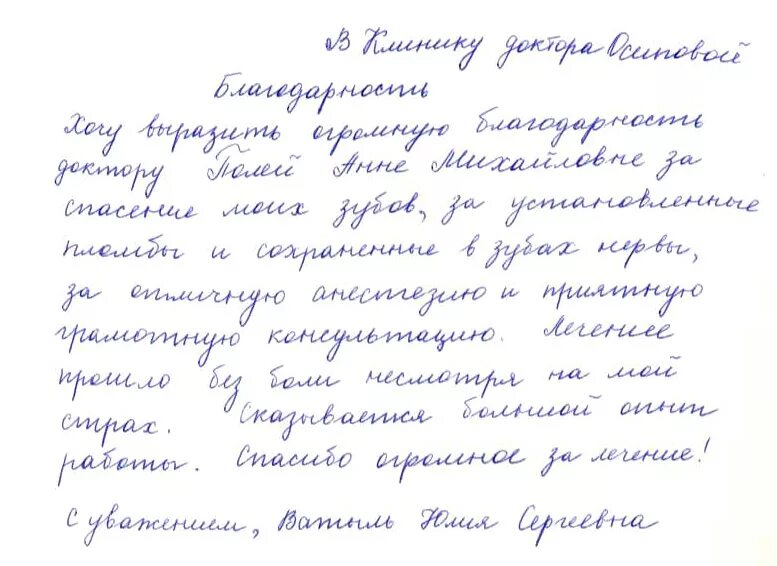 В Клинику доктора Осиповой
Благодарность
Хочу выразить огромную благодарность
доктору Полей Анне Михайловне за
спасение моих зубов, за установленные
пломбы и сохраненные в зубах нервы,
за отличную анестезию и приятную
грамотную консультацию. Лечение
прошло без боли несмотря на мой
страх. Сказывается большой опыт
работы. Спасибо огромное за лечение!
С уважением, Ватыль Юлия Сергеевна